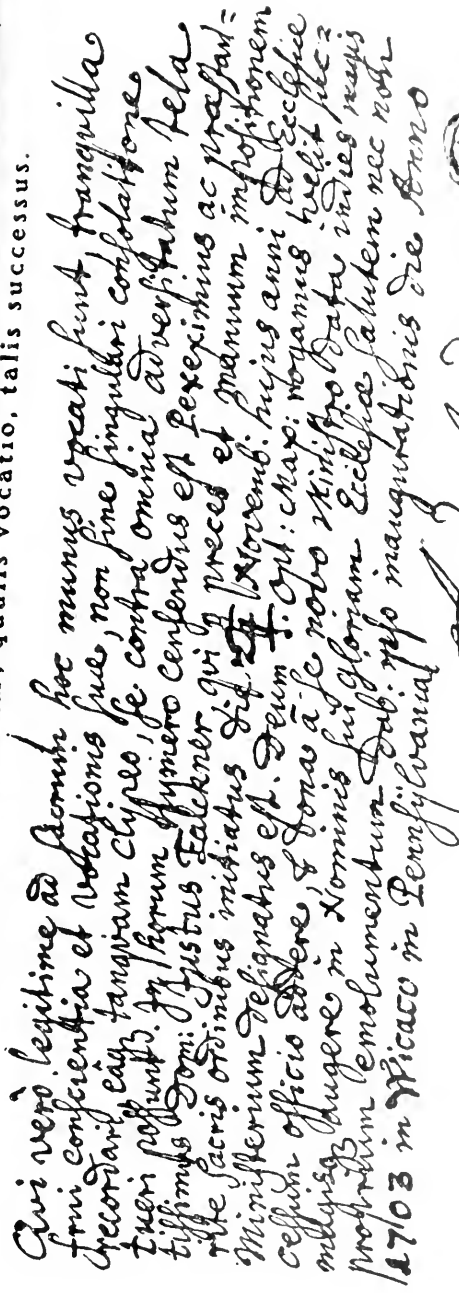 qualis vocatio, talis successus.
Qui verò legitime ad sacrum hoc munus vocati sunt tranquilla
frui conscientia et vocationis suæ, non sine singulari consolatione
recordari eaq tanqvam clypeo, se contra omnia adversitatum tela
tueri possunt. In horum numero censendus est Pereximius ac præstan=
tissimus Dom: Justus Falckner qui preces et manuum impositionem
rite sacris ordinibus initiatus die 24 Novemb: hujus anni ad Ecclesiæ
Ministerium designatus est. Deum T. Opt: Max: rogamus velit suc=
cessum officio addere, & dona â se novo Ministro data indies magis
magisq augere in Nominis sui gloriam Ecclesiæ salutem nec non
proprium emolumentum Dab: ipso inaugurationis die Anno
1703 in Wicaco in Pennsylvaniæ